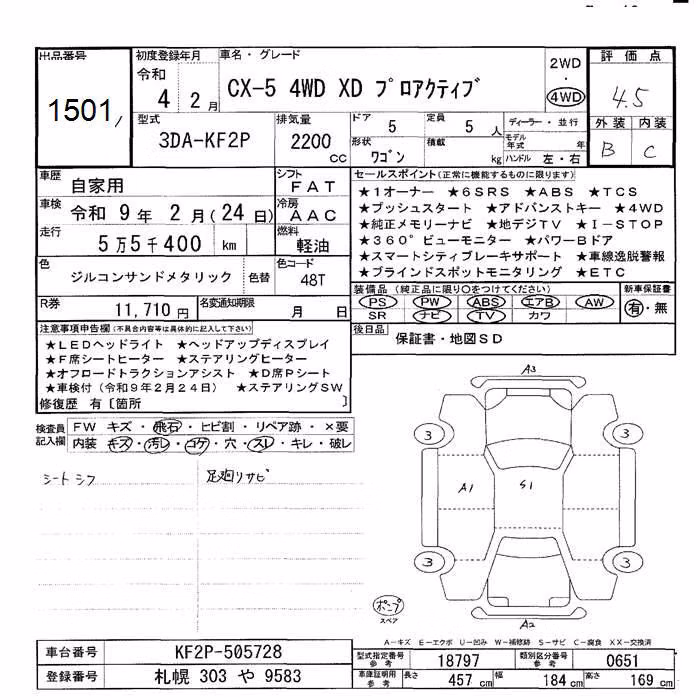 出品番号
1501
初度登録年月
令和
4 2月
車名・グレード
CX-5 4WD XD プロアクティブ
2WD
・
4WD
評価点
4.5
外装 内装
B C
型式
3DA-KF2P
排気量
2200
cc
ドア
5
定員
5 人
形状
ワゴン
積載
kg
ディーラー・並行
モデル年式 年
ハンドル 左・右
車歴
自家用
シフト
FAT
車検
令和 9年 2月(24日)
冷房
AAC
走行
5万5千400 km
燃料
軽油
色
ジルコンサンドメタリック
色替
色コード
48T
R券
11,710円
名変通知期限
月 日
セールスポイント(正常に機能するものに限ります)
★1オーナー ★6SRS ★ABS ★TCS
★プッシュスタート ★アドバンストキー ★4WD
★純正メモリーナビ ★地デジTV ★I-STOP
★360°ビューモニター ★パワーBドア
★スマートシティブレーキサポート ★車線逸脱警報
★ブラインドスポットモニタリング ★ETC
装備品(純正品に限り○をつけてください)
PS PW ABS エアB AW
SR ナビ TV カワ
新車保証書
有・無
後日品
保証書・地図SD
注意事項申告欄(不具合内容等は具体的に記入して下さい)
★LEDヘッドライト ★ヘッドアップディスプレイ
★F席シートヒーター ★ステアリングヒーター
★オフロードトラクションアシスト ★D席Pシート
★車検付(令和9年2月24日) ★ステアリングSW
修復歴 有〔箇所 〕
検査員記入欄
FW キズ・飛石・ヒビ割・リペア跡・×要
内装 キズ・汚レ・コゲ・穴・スレ・キレ・破レ
シートシワ
足廻リサビ
A3
3
3
A1
S1
3
3
A2
ポンプ
スペア
A-キズ E-エクボ U-凹み W-補修跡 S-サビ C-腐食 XX-交換済
車台番号
KF2P-505728
登録番号
札幌 303 や 9583
型式指定番号
参考
18797
類別区分番号
参考
0651
車庫証明用
参考
長さ 457 cm 幅 184 cm 高さ 169 cm